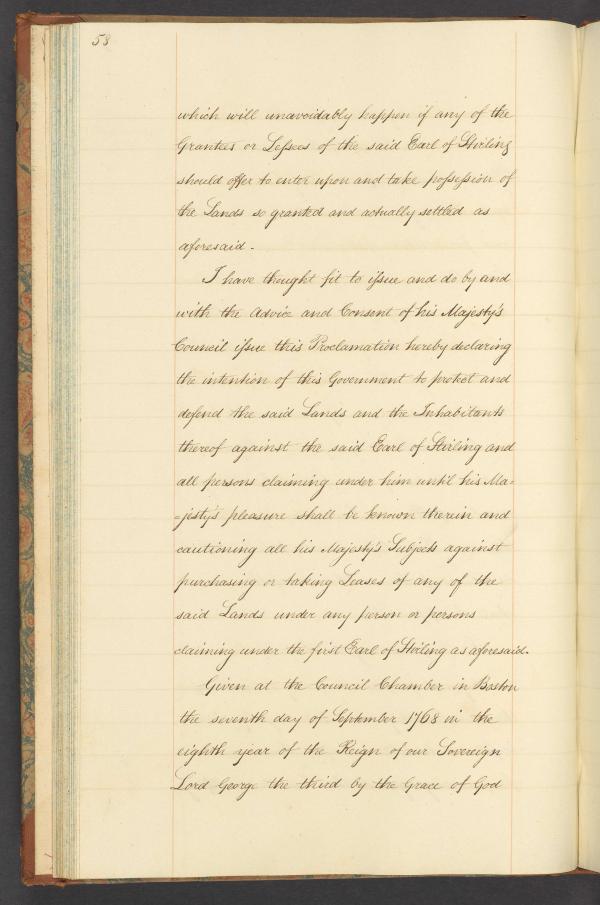 58
which will unavoidably happen if any of the
Grantees or Lessees of the said Earl of Stirling
should offer to enter upon and take possession of
the Lands so granted and actually settled as
aforesaid.
I have thought fit to issue and do by and
with the Advice and Consent of his Majesty's
Council issue this Proclamation hereby declaring
the intention of this Government to protect and
defend the said Lands and the Inhabitants
thereof against the said Earl of Stirling and
all persons claiming under him until his Ma=
=jesty's pleasure shall be known therein and
cautioning all his Majesty's Subjects against
purchasing or taking Leases of any of the
said Lands under any person or persons
claiming under the first Earl of Stirling as aforesaid.
Given at the Council Chamber in Boston
the seventh day of September 1768 in the
eighth year of the Reign of our Sovereign
Lord George the third by the Grace of God